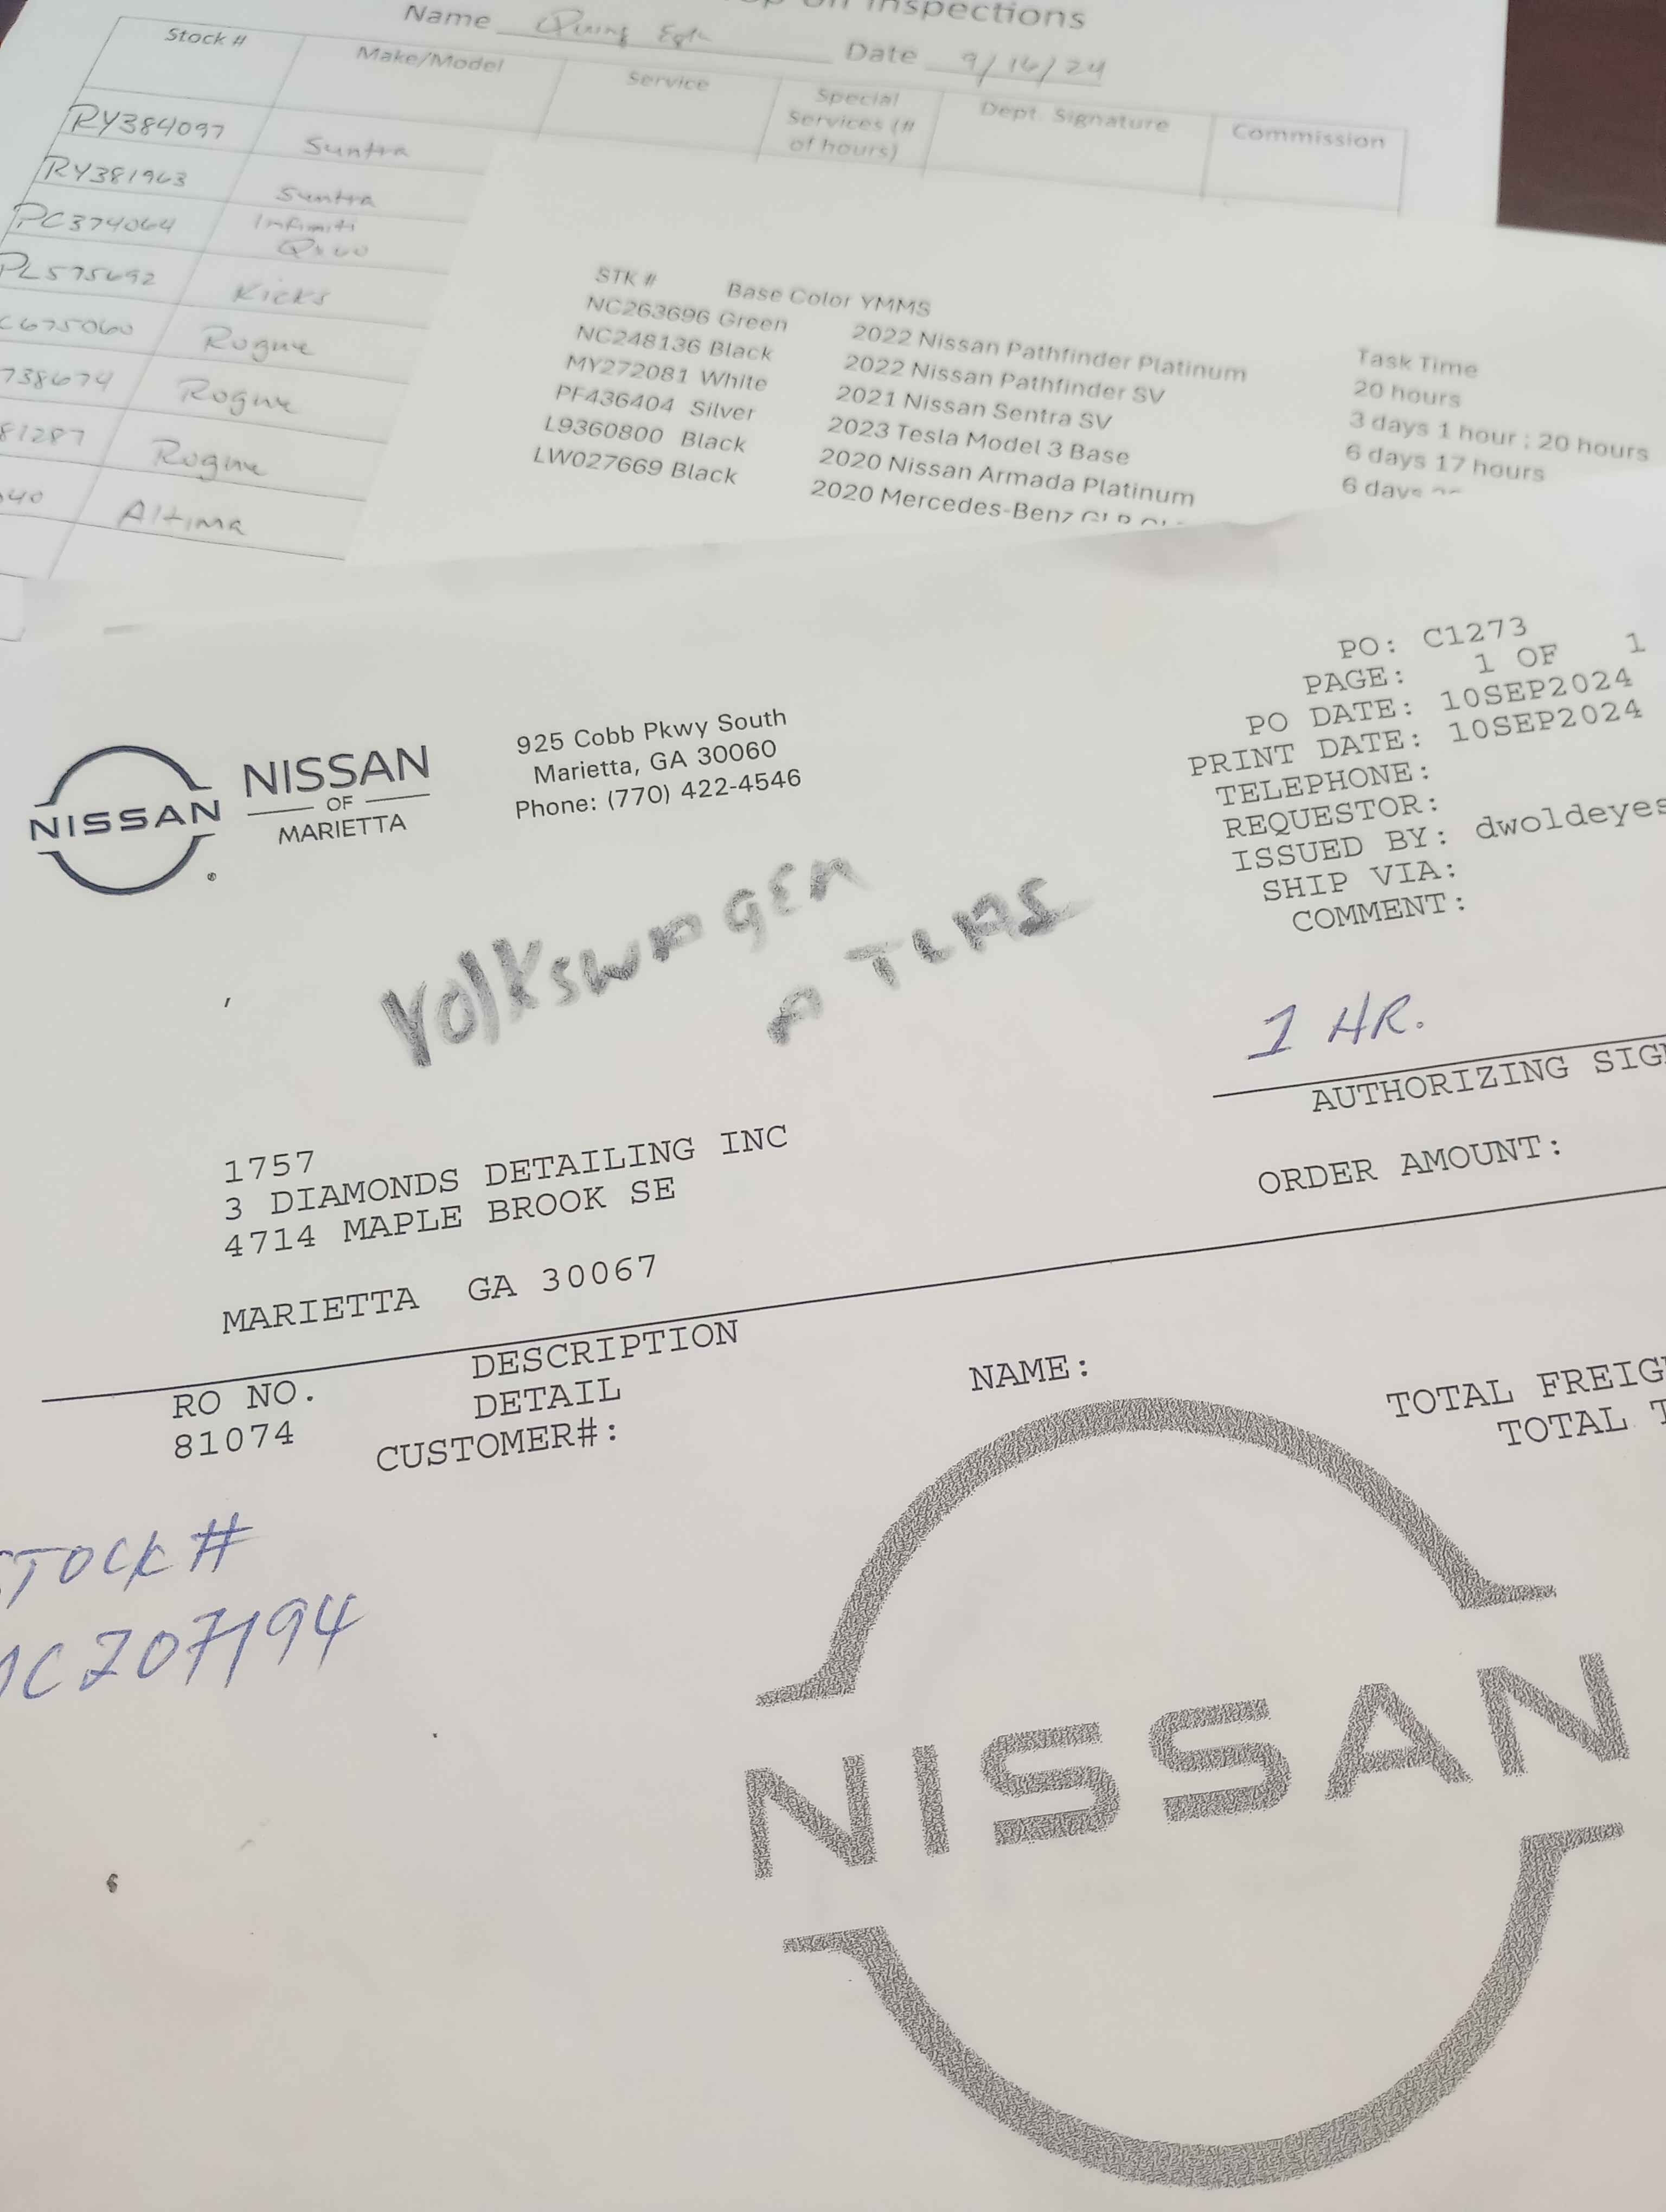 Inspections
Name
Date 9/16/24
Stock # Make/Model Service Special Services (# of hours) Dept. Signature Commission
RY384097 Suntra
RY381963 Suntra
PC374064 Infiniti
Qx60
PL575692 Kicks
C675060 Rogue
738674 Rogue
81287 Rogue
40 Altima
STK # Base Color YMMS Task Time
NC263696 Green 2022 Nissan Pathfinder Platinum 20 hours
NC248136 Black 2022 Nissan Pathfinder SV 3 days 1 hour ; 20 hours
MY272081 White 2021 Nissan Sentra SV 6 days 17 hours
PF436404 Silver 2023 Tesla Model 3 Base 6 days
L9360800 Black 2020 Nissan Armada Platinum
LW027669 Black 2020 Mercedes-Benz
PO: C1273
PAGE: 1 OF 1
PO DATE: 10SEP2024
PRINT DATE: 10SEP2024
TELEPHONE:
REQUESTOR:
ISSUED BY: dwoldeyes
SHIP VIA:
COMMENT:
NISSAN
NISSAN
OF
MARIETTA
925 Cobb Pkwy South
Marietta, GA 30060
Phone: (770) 422-4546
VOlKSWAGEN
ATLAS
1 HR.
AUTHORIZING SIG
1757
3 DIAMONDS DETAILING INC
4714 MAPLE BROOK SE
MARIETTA GA 30067
ORDER AMOUNT:
RO NO. DESCRIPTION
81074 DETAIL
CUSTOMER#: NAME:
TOTAL FREIG
TOTAL T
STOCK #
C207194
NISSAN